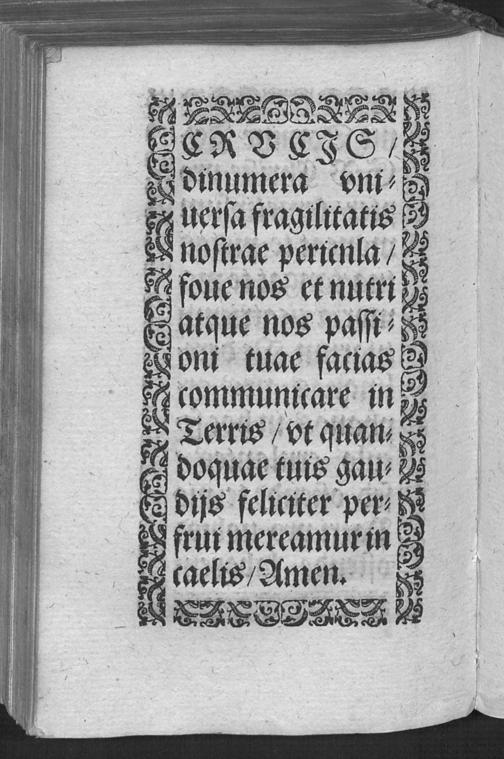 CRVCIS /
dinumera vni⸗
uersa fragilitatis
nostrae pericnla /
foue nos et nutri
atque nos passi⸗
oni tuae facias
communicare in
Terris / vt quan⸗
doquae tuis gau⸗
dijs feliciter per⸗
frui mereamur in
caelis / Amen.